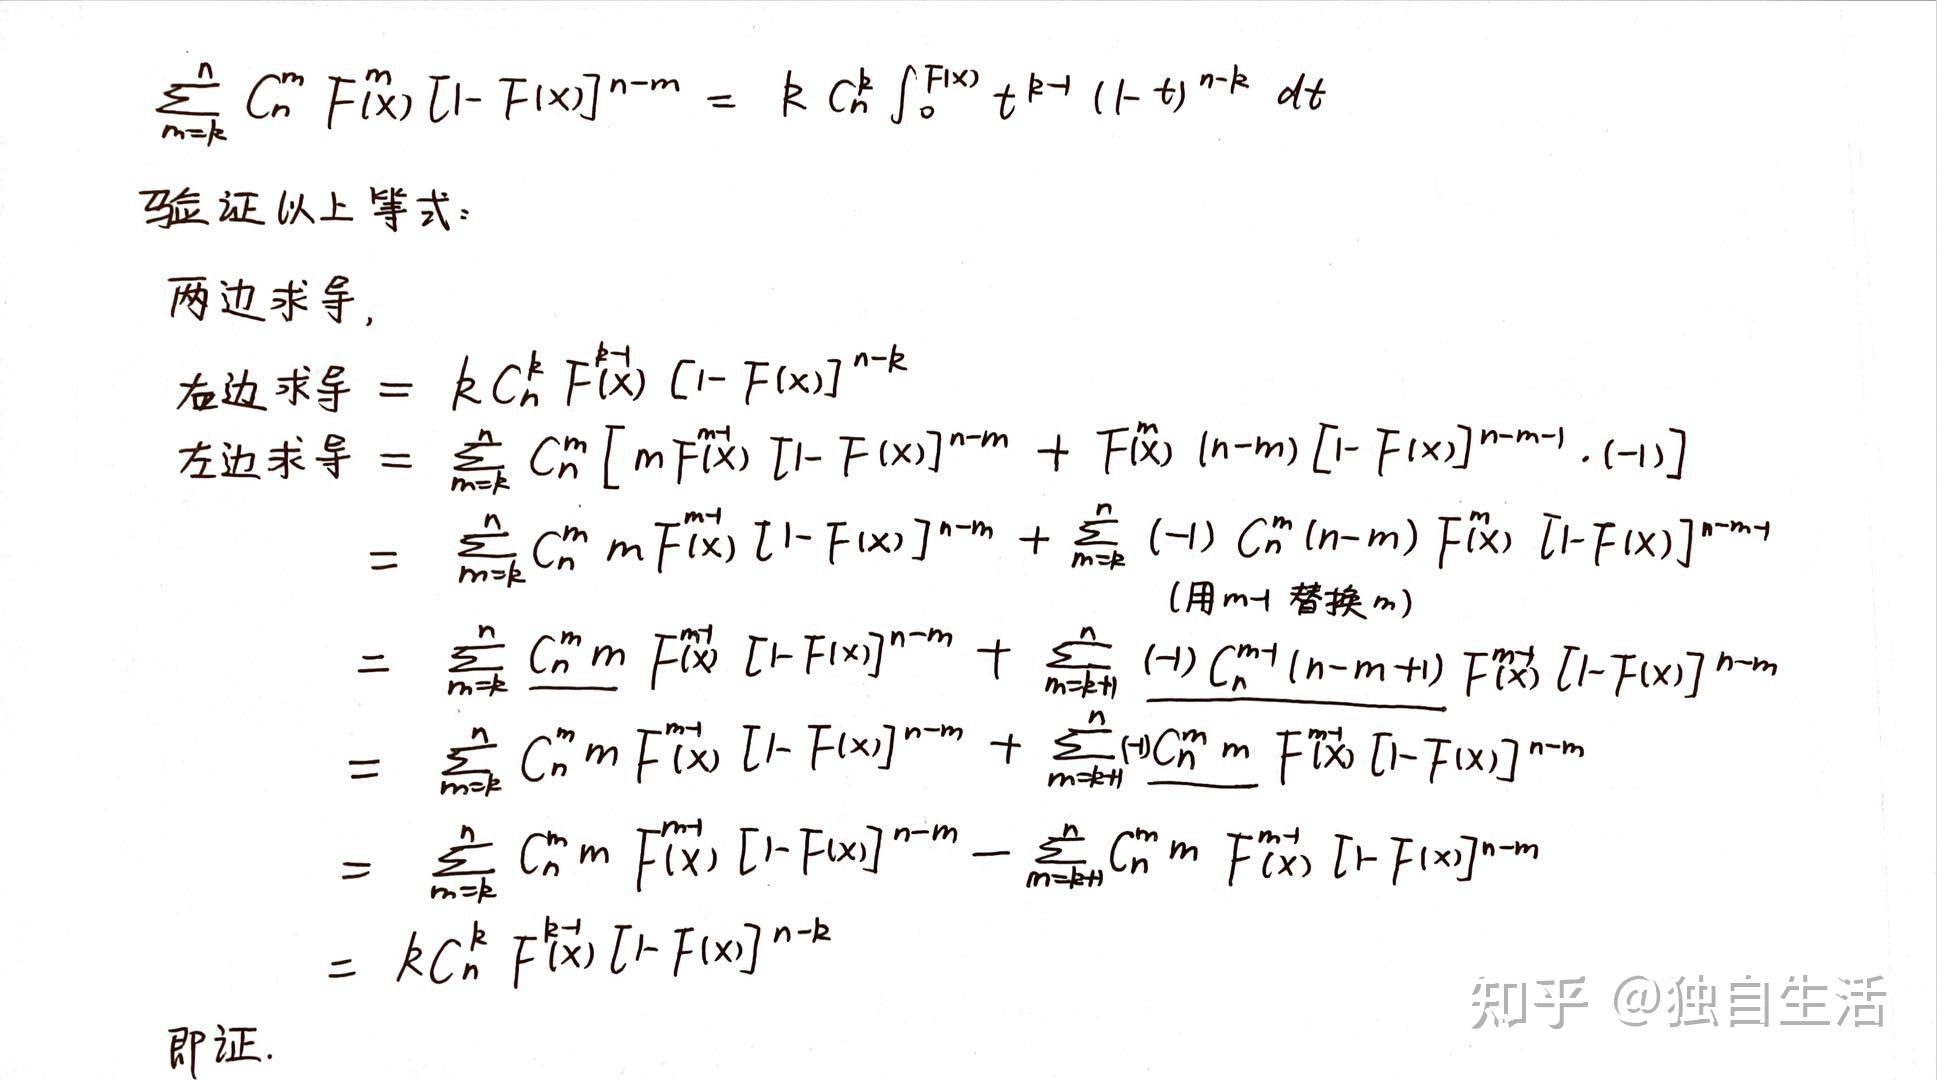 $\sum_{m=k}^{n} C_n^m F^m(x) [1-F(x)]^{n-m} = k C_n^k \int_0^{F(x)} t^{k-1} (1-t)^{n-k} dt$
验证以上等式:
两边求导,
右边求导 = $k C_n^k F^{k-1}(x) [1-F(x)]^{n-k}$
左边求导 = $\sum_{m=k}^{n} C_n^m [m F^{m-1}(x) [1-F(x)]^{n-m} + F^m(x) (n-m) [1-F(x)]^{n-m-1} \cdot (-1)]$
= $\sum_{m=k}^{n} C_n^m m F^{m-1}(x) [1-F(x)]^{n-m} + \sum_{m=k}^{n} (-1) C_n^m (n-m) F^m(x) [1-F(x)]^{n-m-1}$
(用m-1替换m)
= $\sum_{m=k}^{n} \underline{C_n^m m} F^{m-1}(x) [1-F(x)]^{n-m} + \sum_{m=k+1}^{n} \underline{(-1) C_n^{m-1} (n-m+1)} F^{m-1}(x) [1-F(x)]^{n-m}$
= $\sum_{m=k}^{n} C_n^m m F^{m-1}(x) [1-F(x)]^{n-m} + \sum_{m=k+1}^{n} (-1) \underline{C_n^m m} F^{m-1}(x) [1-F(x)]^{n-m}$
= $\sum_{m=k}^{n} C_n^m m F^{m-1}(x) [1-F(x)]^{n-m} - \sum_{m=k+1}^{n} C_n^m m F^{m-1}(x) [1-F(x)]^{n-m}$
= $k C_n^k F^{k-1}(x) [1-F(x)]^{n-k}$
即证.
知乎 @独自生活